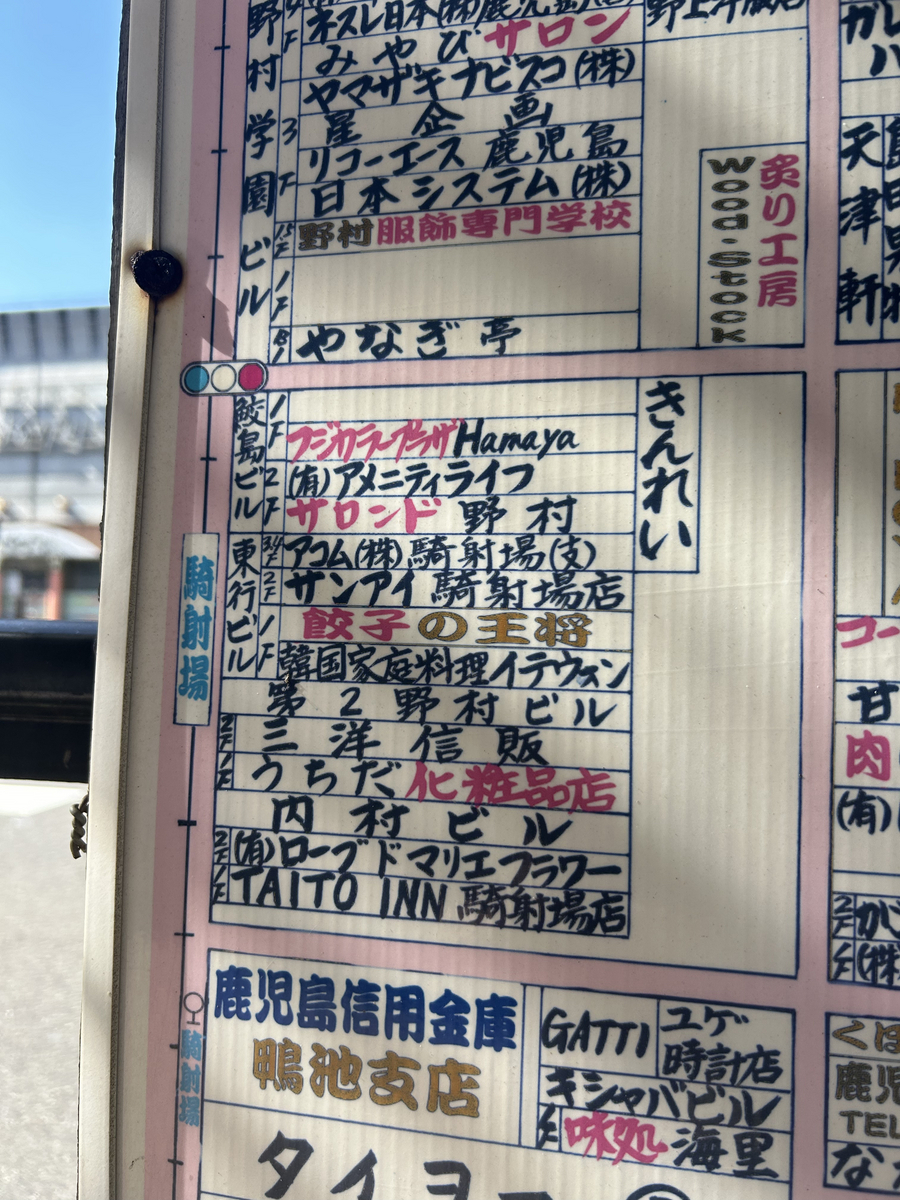 野村学園ビル
ネスレ日本(株)鹿児島
みやびサロン
ヤマザキナビスコ(株)
3F
星企画
リコーエース鹿児島
日本システム(株)
野村服飾専門学校
1F
B1
やなぎ亭
炙り工房
wood·stock
天津軒
鮫島ビル
1F
フジカラープラザHamaya
2F
(有)アメニティライフ
サロンド野村
きんれい
東行ビル
アコム(株)騎射場(支)
2F
サンアイ騎射場店
1F
餃子の王将
韓国家庭料理イテウォン
騎射場
第2野村ビル
2F
三洋信販
1F
うちだ化粧品店
内村ビル
2F
(有)ローブドマリエフラワー
1F
TAITO INN 騎射場店
騎射場
鹿児島信用金庫
鴨池支店
GATTI
ユゲ時計店
キシャバビル
1F
味処海里
タイヨー
コー
甘
肉
(有)
2F
1F
(株)
鹿児
TEL
な